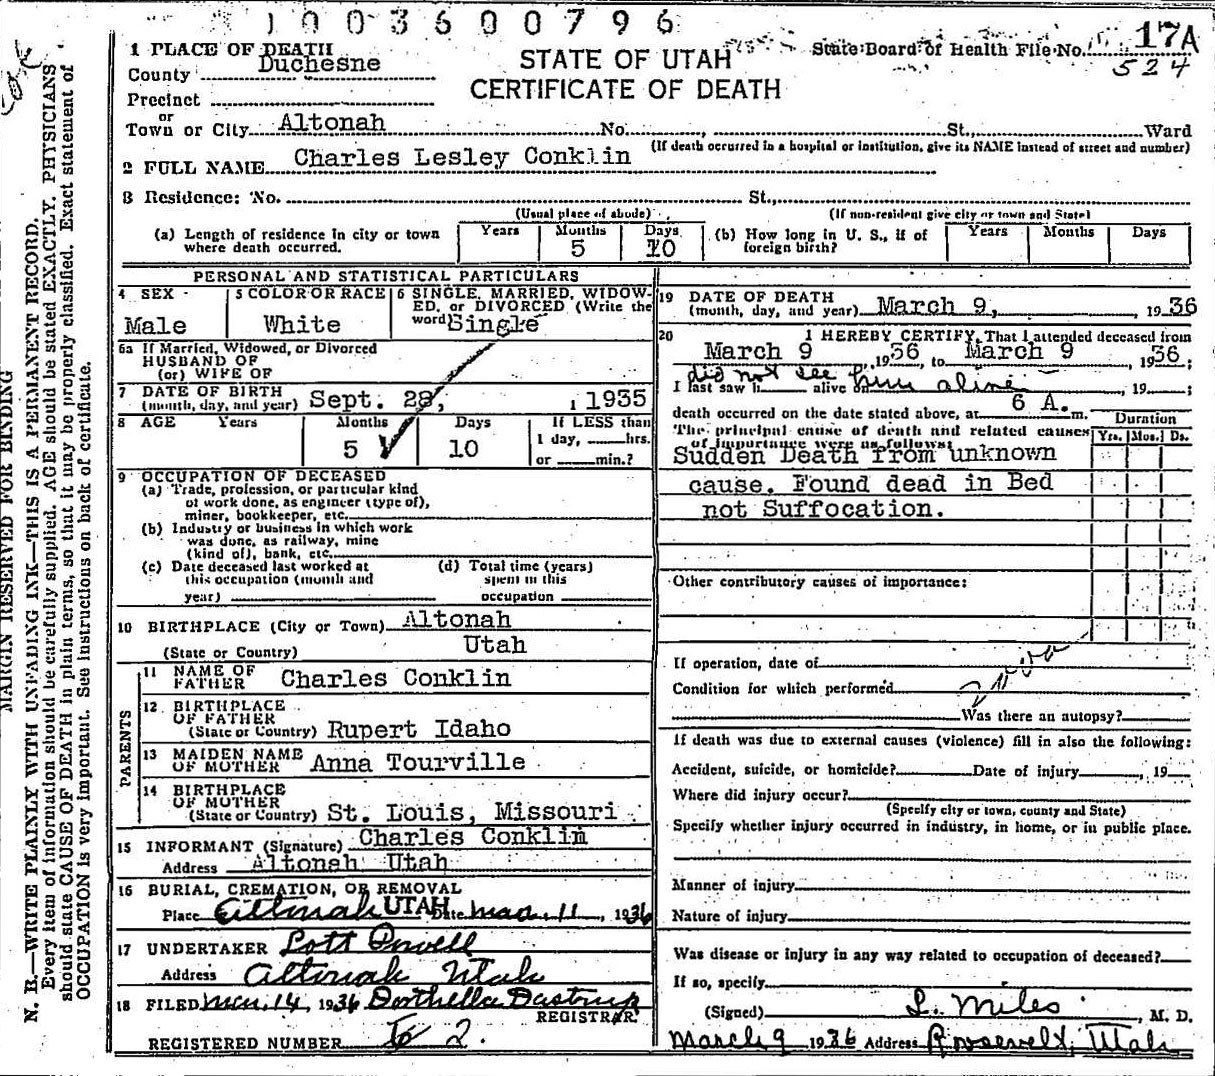 1003600796
1 PLACE OF DEATH
STATE OF UTAH
CERTIFICATE OF DEATH
State Board of Health File No. 17A
524
County Duchesne
Precinct
or
Town or City Altonah No. , St., Ward
(If death occurred in a hospital or institution, give its NAME instead of street and number)
2 FULL NAME Charles Lesley Conklin
3 Residence: No. St.,
(Usual place of abode) (If non-resident give city or town and State)
(a) Length of residence in city or town where death occurred. Years Months 5 Days 10
(b) How long in U. S., if of foreign birth? Years Months Days
PERSONAL AND STATISTICAL PARTICULARS
4 SEX Male
5 COLOR OR RACE White
6 SINGLE, MARRIED, WIDOWED, or DIVORCED (Write the word) Single
6a If Married, Widowed, or Divorced
HUSBAND OF
(or) WIFE OF
7 DATE OF BIRTH
(month, day, and year) Sept. 28, 1935
8 AGE Years Months 5 Days 10 If LESS than
1 day, hrs.
or min.?
9 OCCUPATION OF DECEASED
(a) Trade, profession, or particular kind
of work done, as engineer (type of),
miner, bookkeeper, etc.
(b) Industry or business in which work
was done, as railway, mine
(kind of), bank, etc.
(c) Date deceased last worked at
this occupation (month and
year)
(d) Total time (years)
spent in this
occupation
10 BIRTHPLACE (City or Town) Altonah
(State or Country) Utah
PARENTS
11 NAME OF
FATHER Charles Conklin
12 BIRTHPLACE
OF FATHER
(State or Country) Rupert Idaho
13 MAIDEN NAME
OF MOTHER Anna Tourville
14 BIRTHPLACE
OF MOTHER
(State or Country) St. Louis, Missouri
15 INFORMANT (Signature) Charles Conklin
Address Altonah Utah
16 BURIAL, CREMATION, OR REMOVAL
Place Altonah UTAH Date Mar. 11, 1936
17 UNDERTAKER Lott Powell
Address Altonah Utah
18 FILED Mar. 14, 1936 Dorthella Dastrup
REGISTRAR
REGISTERED NUMBER 2.
19 DATE OF DEATH
(month, day, and year) March 9, 1936
20 I HEREBY CERTIFY, That I attended deceased from
March 9, 1936, to March 9, 1936;
did not see him alive
I last saw h alive on , 19 ;
death occurred on the date stated above, at 6 A. m.
The principal cause of death and related causes
of importance were as follows:
Duration
Yrs. Mos. Ds.
Sudden Death from unknown
cause. Found dead in Bed
not Suffocation.
Other contributory causes of importance:
If operation, date of
Condition for which performed
Was there an autopsy?
If death was due to external causes (violence) fill in also the following:
Accident, suicide, or homicide? Date of injury , 19
Where did injury occur?
(Specify city or town, county and State)
Specify whether injury occurred in industry, in home, or in public place.
Manner of injury
Nature of injury
Was disease or injury in any way related to occupation of deceased?
If so, specify
(Signed) L. Miles , M. D.
March 9 1936 Address Roosevelt, Utah
MARGIN RESERVED FOR BINDING
N. B.—WRITE PLAINLY WITH UNFADING INK—THIS IS A PERMANENT RECORD.
Every item of information should be carefully supplied. AGE should be stated EXACTLY. PHYSICIANS
should state CAUSE OF DEATH in plain terms, so that it may be properly classified. Exact statement of
OCCUPATION is very important. See instructions on back of certificate.